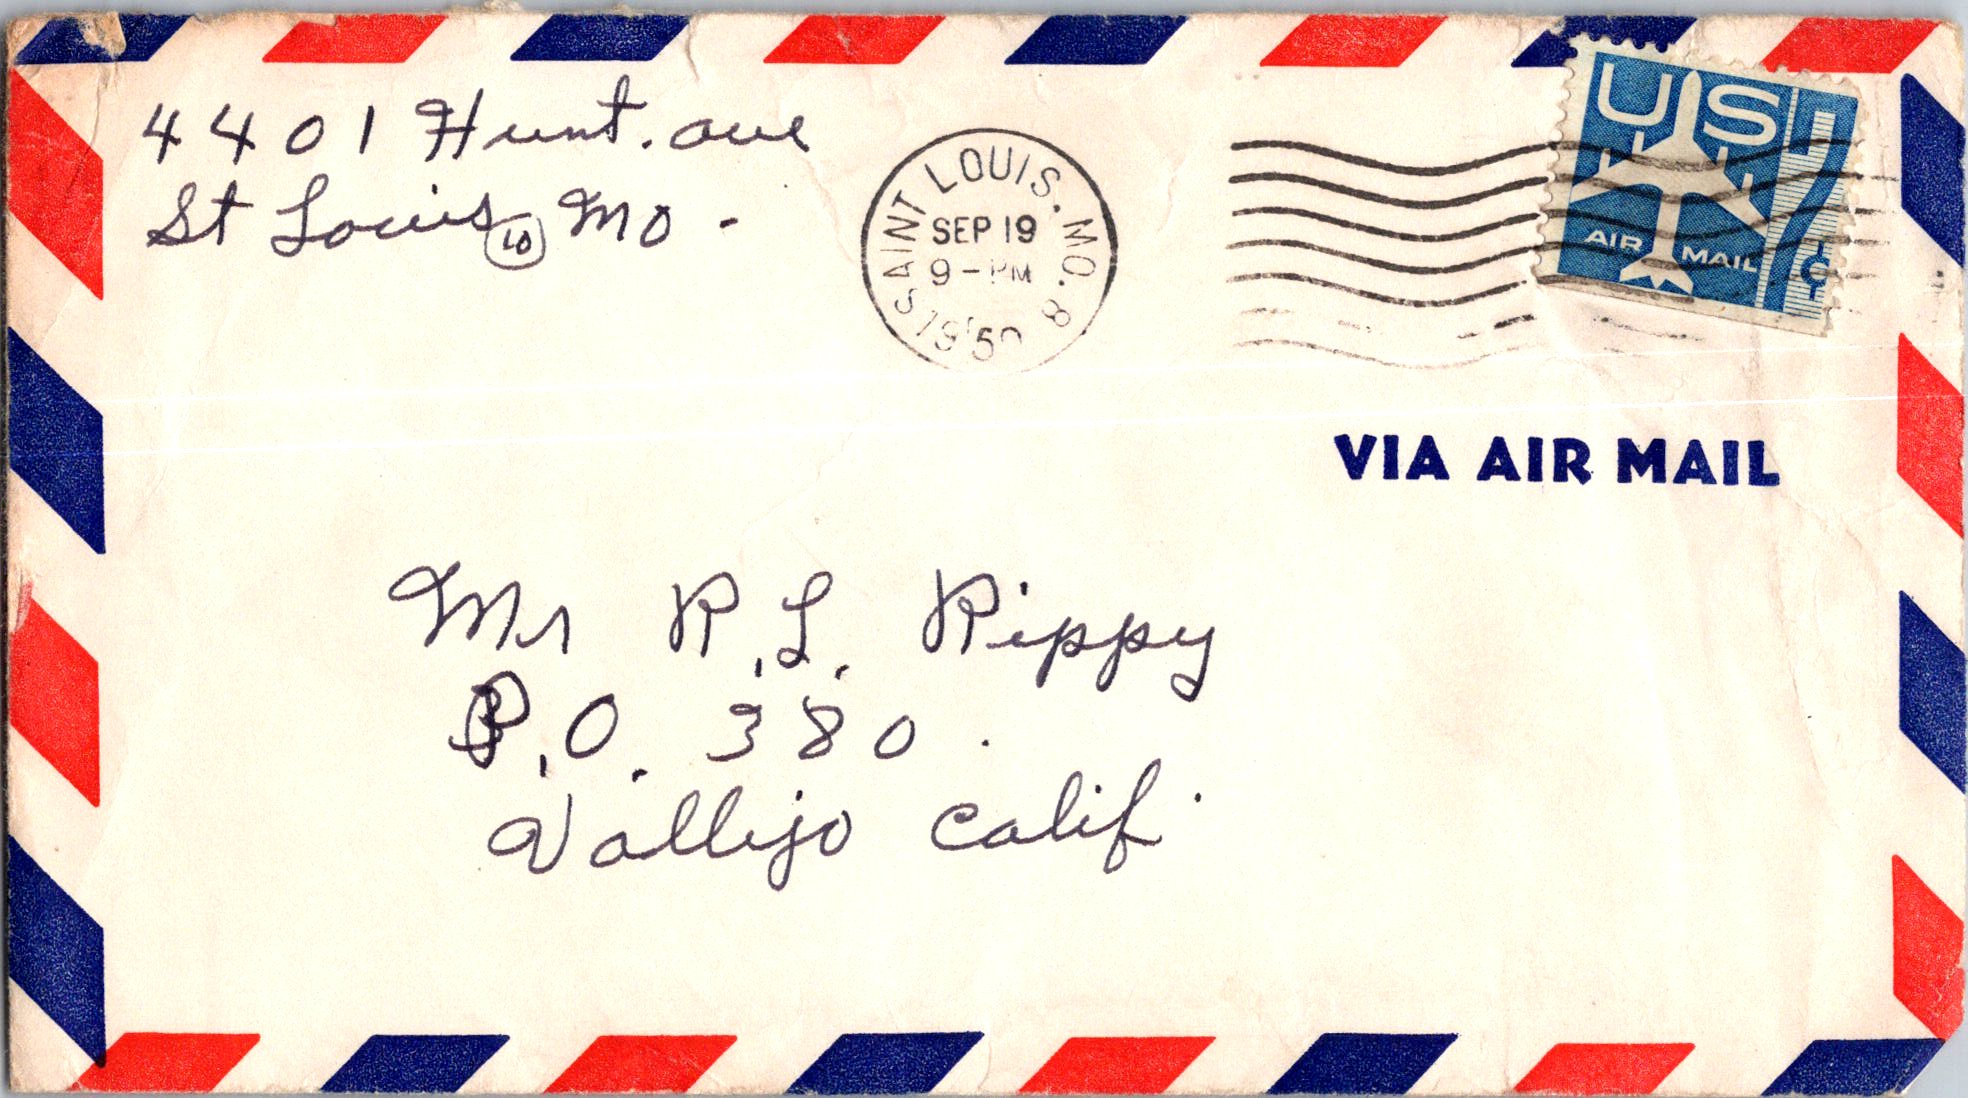 4401 Hunt. ave
St Louis 10 Mo -
SAINT LOUIS, MO. 8
SEP 19
9 - PM
US
AIR MAIL
7¢
VIA AIR MAIL
Mr R.L. Rippy
P.O. 380.
Vallejo Calif.